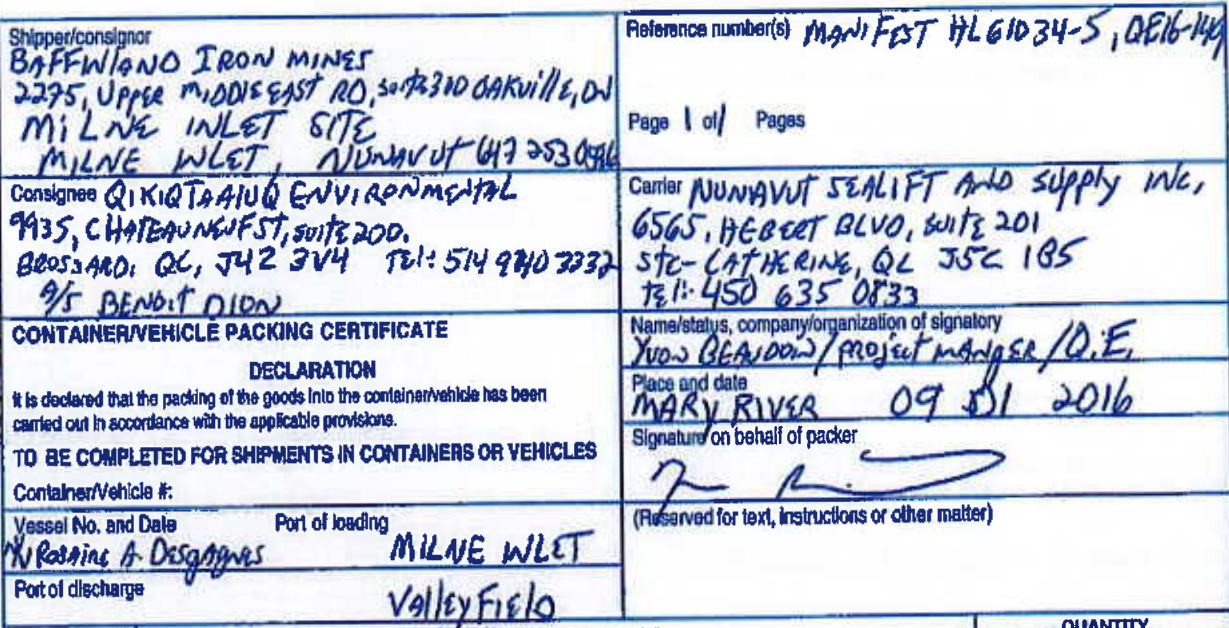 Shipper/consignor
BAFFINLAND IRON MINES
2275, UPPER MIDDLE EAST RD, suite 300 OAKVILLE, ON
MILNE INLET SITE
MILNE INLET, NUNAVUT 647 253
Reference number(s) MANIFEST HL61034-5, QE16-149
Page 1 of 1 Pages
Consignee QIKIQTAALUQ ENVIRONMENTAL
9935, CHATEAUNEUF ST, suite 200.
BROSSARD, QC, J4Z 3V4 Tel: 514 940 3332
A/S BENOIT DION
Carrier NUNAVUT SEALIFT AND SUPPLY INC,
6565, HEBERT BLVD, SUITE 201
STE-CATHERINE, QC J5C 1B5
Tel: 450 635 0833
CONTAINER/VEHICLE PACKING CERTIFICATE
DECLARATION
It is declared that the packing of the goods into the container/vehicle has been
carried out in accordance with the applicable provisions.
TO BE COMPLETED FOR SHIPMENTS IN CONTAINERS OR VEHICLES
Container/Vehicle #:
Name/status, company/organization of signatory
Yvon BEAUDOIN/PROJECT MANGER/Q.E.
Place and date
MARY RIVER 09 01 2016
Signature on behalf of packer
Vessel No. and Date Port of loading
M/V Rosaire A. Desgagnes MILNE INLET
Port of discharge
ValleyField
(Reserved for text, instructions or other matter)
QUANTITY